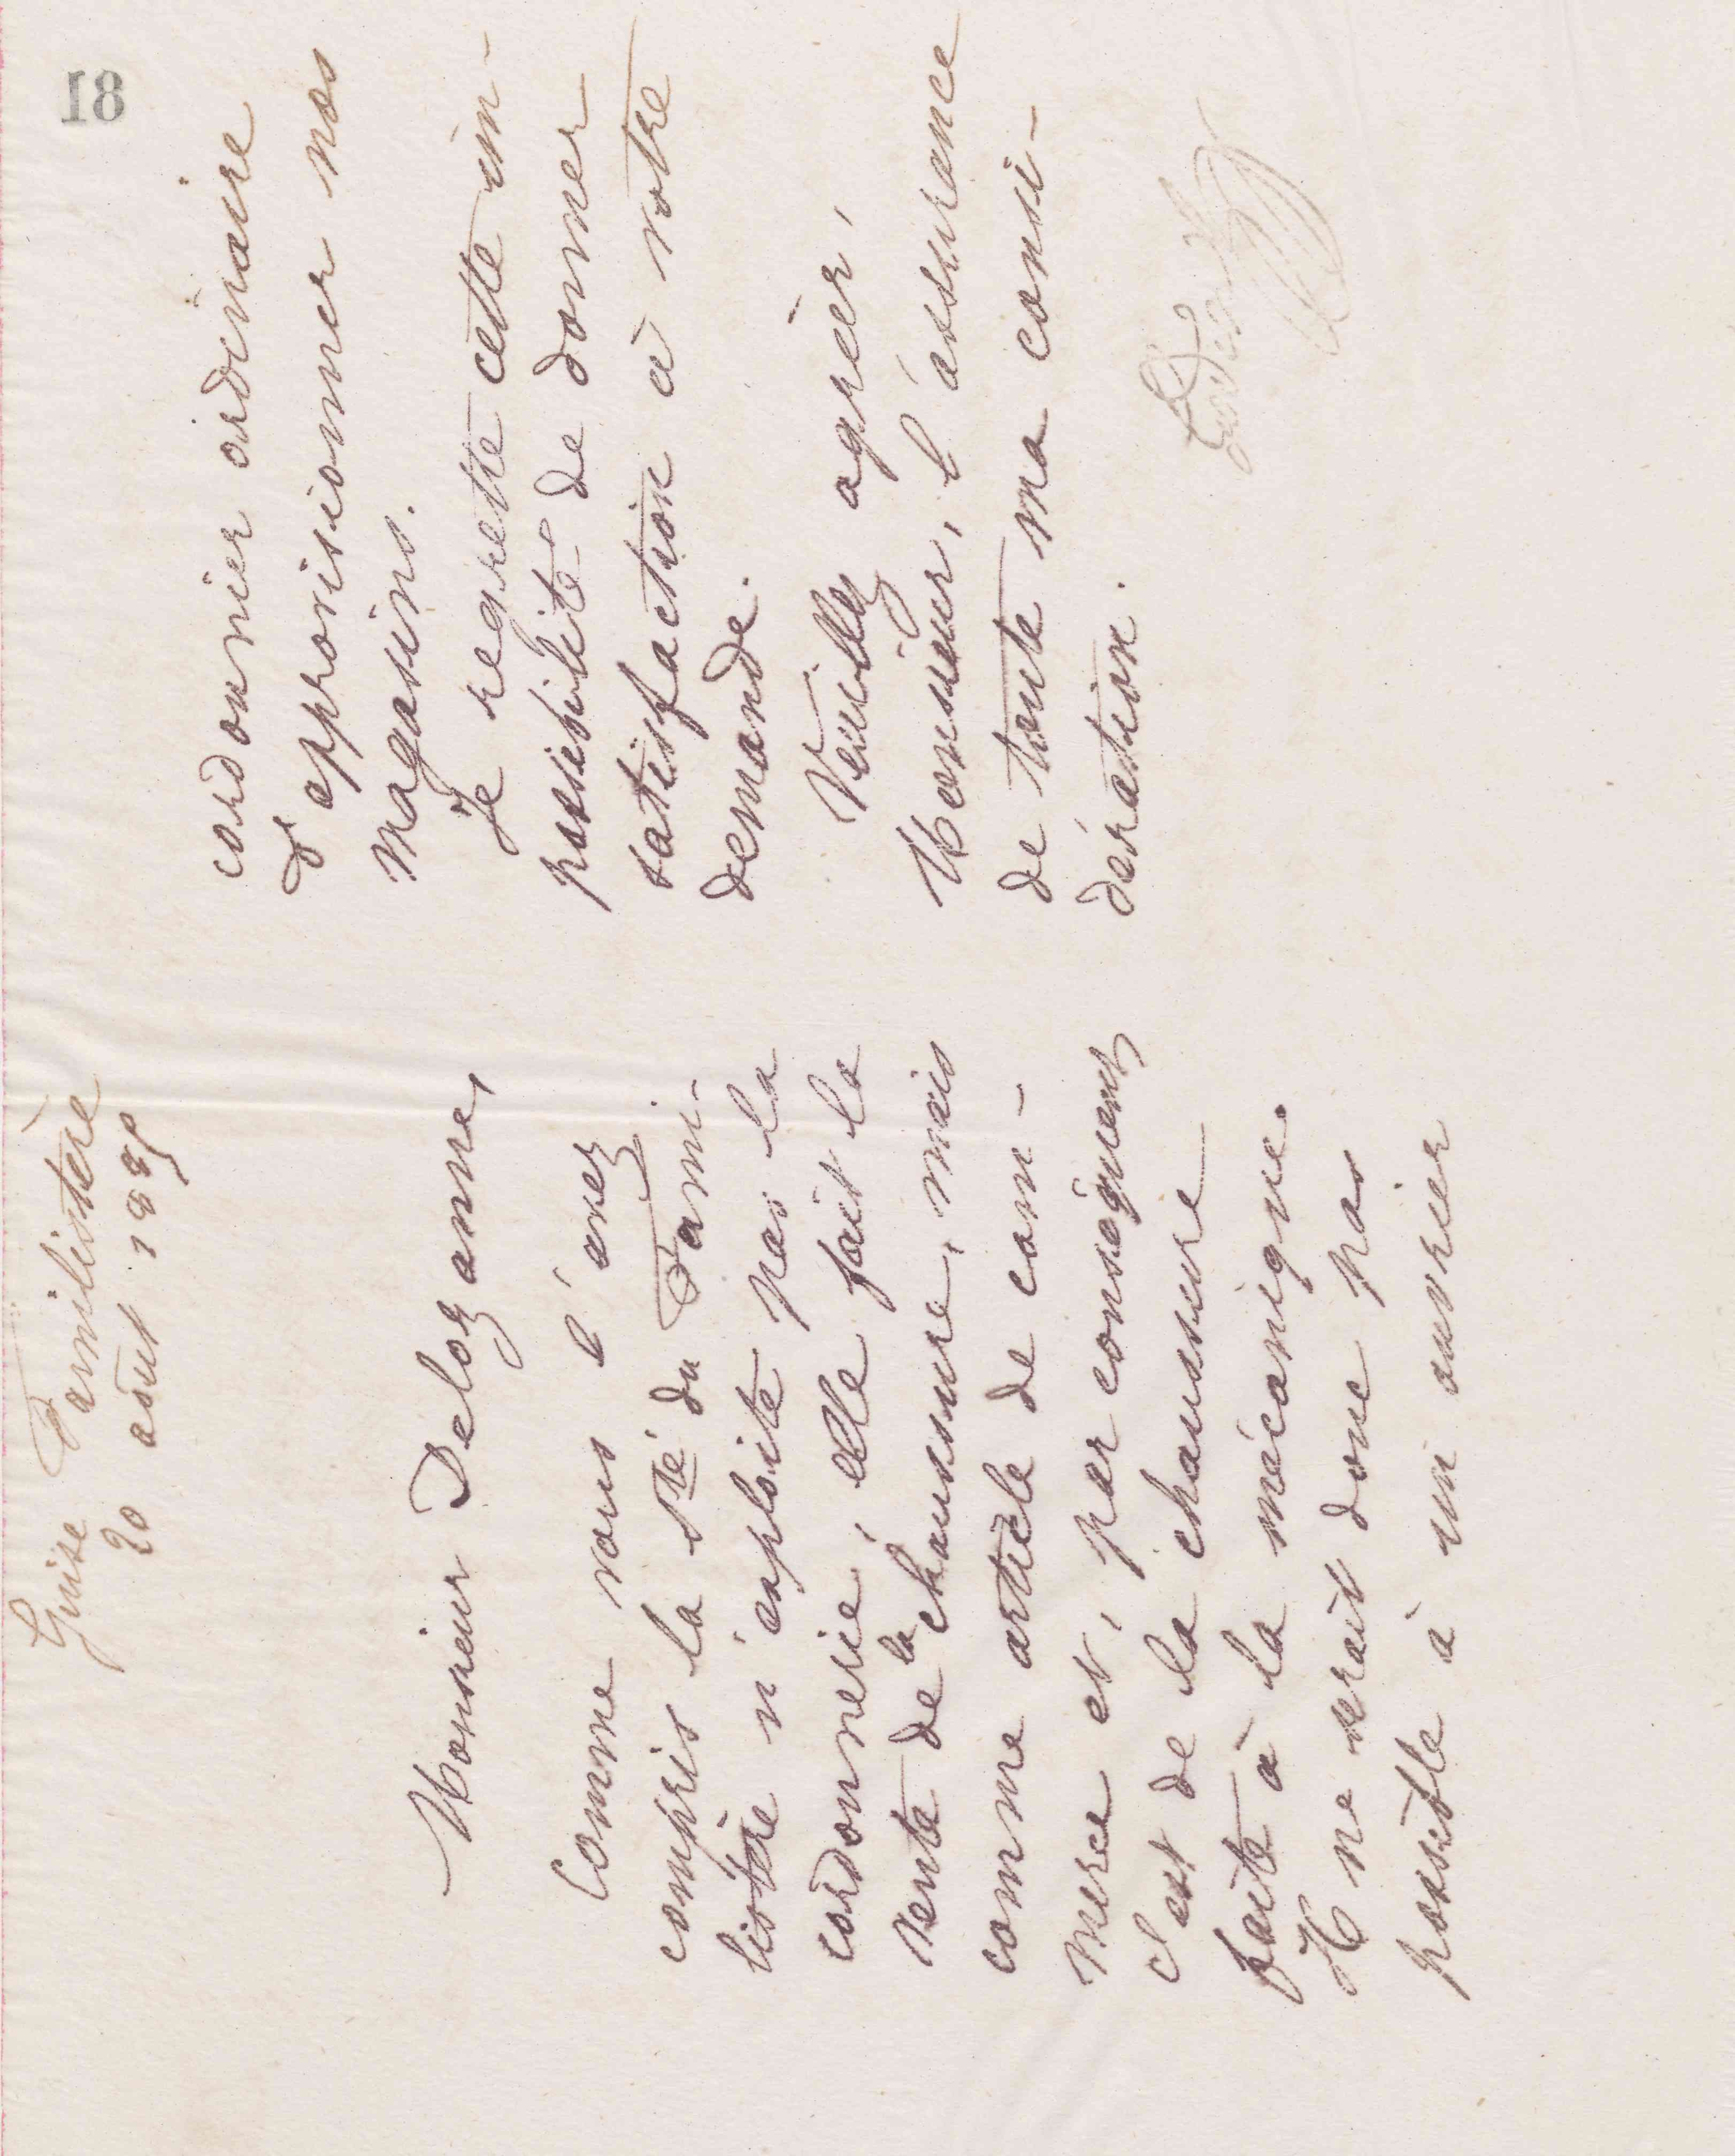 81
Guise Familistère
20 août 1889
Monsieur Delozanne,
Comme vous l'avez
compris la Sté du Fami-
listère n'exploite pas la
cordonnerie, elle fait la
vente de la chaussure, mais
comme article de com-
merce et, par conséquent,
c'est de la chaussure
faite à la mécanique.
Il ne serait donc pas
possible à un ouvrier
cordonnier ordinaire
d'approvisionner nos
magasins.
Je regrette cette im-
possibilité de donner
satisfaction à votre
demande.
Veuillez agréer,
Monsieur, l'assurance
de toute ma consi-
dération.
Godin